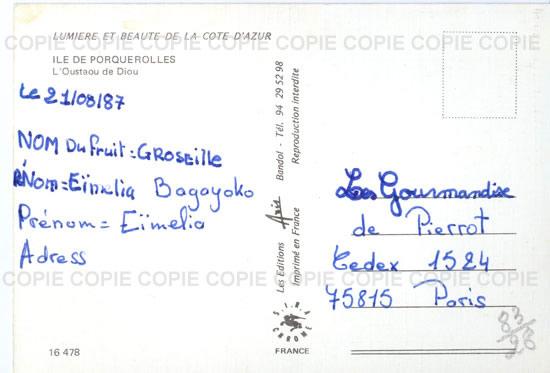 LUMIERE ET BEAUTE DE LA COTE D'AZUR
COPIE COPIE COPIE COPIE COPIE COPIE COPIE
ILE DE PORQUEROLLES
L'Oustaou de Diou
Le 21/08/87
NOM Du fruit = GROSEILLE
Nom = Eïmelia Bagayoko
Prénom = Eïmelia
Adress
COPIE COPIE COPIE COPIE COPIE COPIE COPIE
16 478
Les Editions Aris Bandol - Tél. 94 29 52 98
Imprimé en France Reproduction interdite
FRANCE
Les Gourmandise
de Pierrot
Cedex 1524
75815 Paris